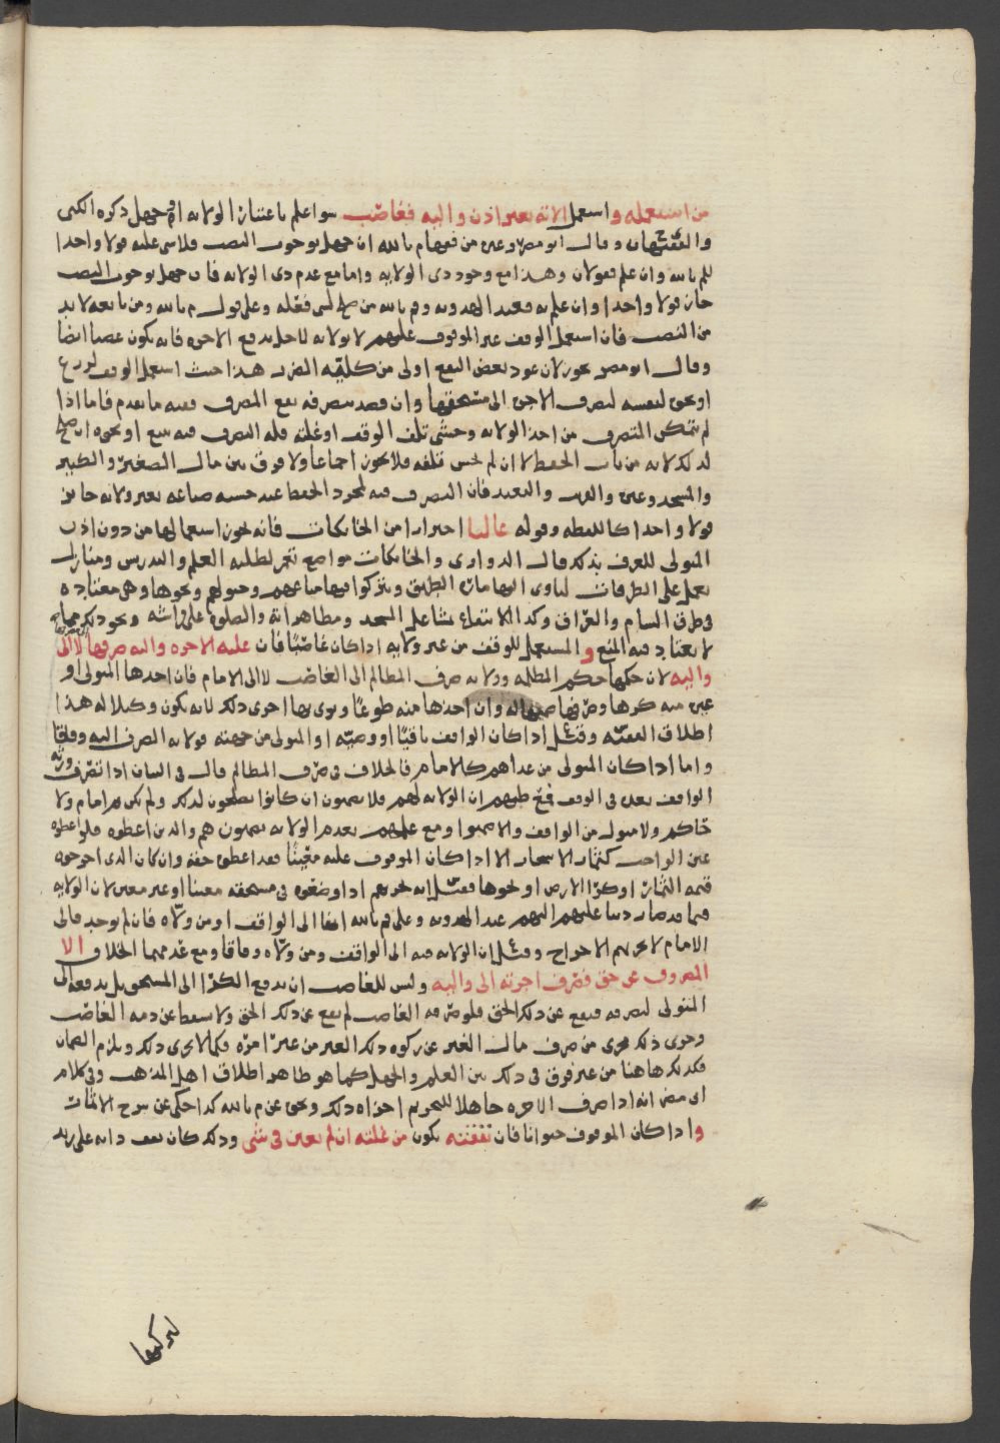 من استعمله واستعمل الاته بغير اذن واليه فغاصب سوا علم باعتبار الولايه ام جهل ذكره الكنى
والفقيهان وقال ابو مضر وغيره من فهام بالله ان جهل بوجوب النصب فلا شى عليه قولا واحدا
للم بالله وان علم فقولان وهذا مع وجود ذى الولايه واما مع عدم ذى الولايه فان جهل بوجوب النصب
جاز قولا واحدا وان علم به فعند الهدويه وم بالله من صلح لشى فعله وعلى قول م بالله ومن تابعه لا بد
من النصب فان استعمل الوقف غير الموقوف عليهم لا بولايه لاجل يدفع الاجره فانه يكون غصبا ايضا
وقال ابو مضر يجوز لان عود بعض النفع اولى من كليه الضرر هذا حيث استعمل الوقف لزرع
او نحوه لنفسه ليصرف الاجره الى مستحقها وان قصد بتصرفه نفع المصرف ففيه ما تقدم فاما اذا
لم يتمكن المتصرف من اخذ الولايه وخشى تلف الوقف او غلته فله التصرف فيه ببيع او نحوه ان صلح
لذلك لانه من باب الحفظ لا ان لم يخش تلفه فلا يجوز اجماعا ولا فرق بين مال الصغير والكبير
والمسجد وغيره والقريب والبعيد فان التصرف فيه لمجرد الحفظ عند خشيه ضياعه بغير ولايه جايز
قولا واحدا كاللقطه وقوله غالبا احترازا من الخانكات فانه يجوز استعمالها من دون اذن
المتولى للعرف بذلك قال الدوارى والخانكات مواضع تعمر لطلبه العلم والتدريس ومنازل
تعمل على الطرقات لياوى اليها ماره الطريق ويتركوا فيها متاعهم وخيولهم ونحوها وهى معتاده
فى طرق الشام والعراق وكذا الانتفاع بشاعل المسجد ومطاهراته والصلوه على فراشه ونحو ذلك مما
لا يعتاد فيه المنع والمستعمل للوقف من غير ولايه اذا كان غاصبا فان عليه الاجره واليه صرفها لا الى
واليه لان حكمها حكم المظلمه وولايه صرف المظالم الى الغاصب لا الى الامام فان اخذها المتولى او
غيره منه كرها وصرفها ضمنها له وان اخذها منه طوعا ونوى بها اجزى ذلك لانه يكون وكيلا له هذا
اطلاق الفقيه وقيل اذا كان الواقف باقيا او وصيه او المتولى من جهته فولايه الصرف اليه وفاقا
واما اذا كان المتولى من عداهم كالامام فالخلاف فى صرف المظالم قال فى البيان اذا تصرف ورثه
الواقف بعده فى الوقف فمع ظنهم ان الولايه لهم فلا يضمنون ان كانوا يصلحون لذلك ولم يكن ثم امام ولا
حاكم ولا متول من الواقف والا ضمنوا ومع علمهم بعدم الولايه يضمنون هم والذين اعطوه فلو اعطوه
عين الواجب كثمار الاشجار الا اذا كان الموقوف عليه معينا فقد اعطوه حقه وان كان الذى اخرجوه
قيمه الثمار او كرا الارض او نحوها فقيل انه يجزيهم اذا وضعوه فى مستحقه معينا او غير معين لان الولايه
فيما قد صار دينا عليهم اليهم عند الهدويه وعلى م بالله انها الى الواقف او من ولاه فان لم يوجد فالى
الامام لا يجزيهم الاخراج وقيل ان الولايه فيه الى الواقف ومن ولاه وفاقا ومع عدمهما الخلاف الا
المصروف عن حق فصرف اجرته الى واليه وليس للغاصب ان يدفع الكرا الى المستحق بل يدفعه الى
المتولى ليصرفه فيقع عن ذلك الحق فلو صرفه الغاصب لم يقع عن ذلك الحق ولا يسقط عن ذمه الغاصب
وجرى ذلك مجرى من صرف مال الغير عن زكوه ذلك الغير من غير امره فكما لا يجزى ذلك ويلزم الضمان
فكذلك هاهنا من غير فرق فى ذلك بين العلم والجهل كما هو ظاهر اطلاق اهل المذهب وفى كلام
ابى مضر انه اذا صرف الاجره جاهلا للتحريم اجزاه ذلك ونحوه عن م بالله كذا حكى عن شرح الاثمار
واذا كان الموقوف حيوانا فان نفقته تكون من غلته ان لم تعين فى شى وذلك كان يقف دابه على زيد
ليركبها